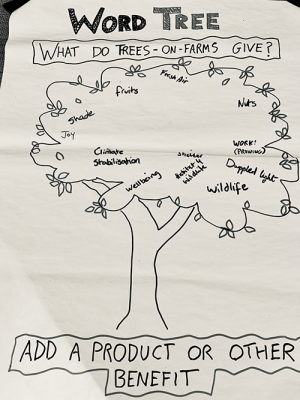 WORD TREE
WHAT DO TREES-ON-FARMS GIVE?
Fresh air
fruits
Nuts
Shade
Joy
WORK!
(PRUNING)
Climate
Stabilisation
Shelter
Habitat 4
Wildlife
Dappled light
Wellbeing
Wildlife
ADD A PRODUCT OR OTHER
BENEFIT